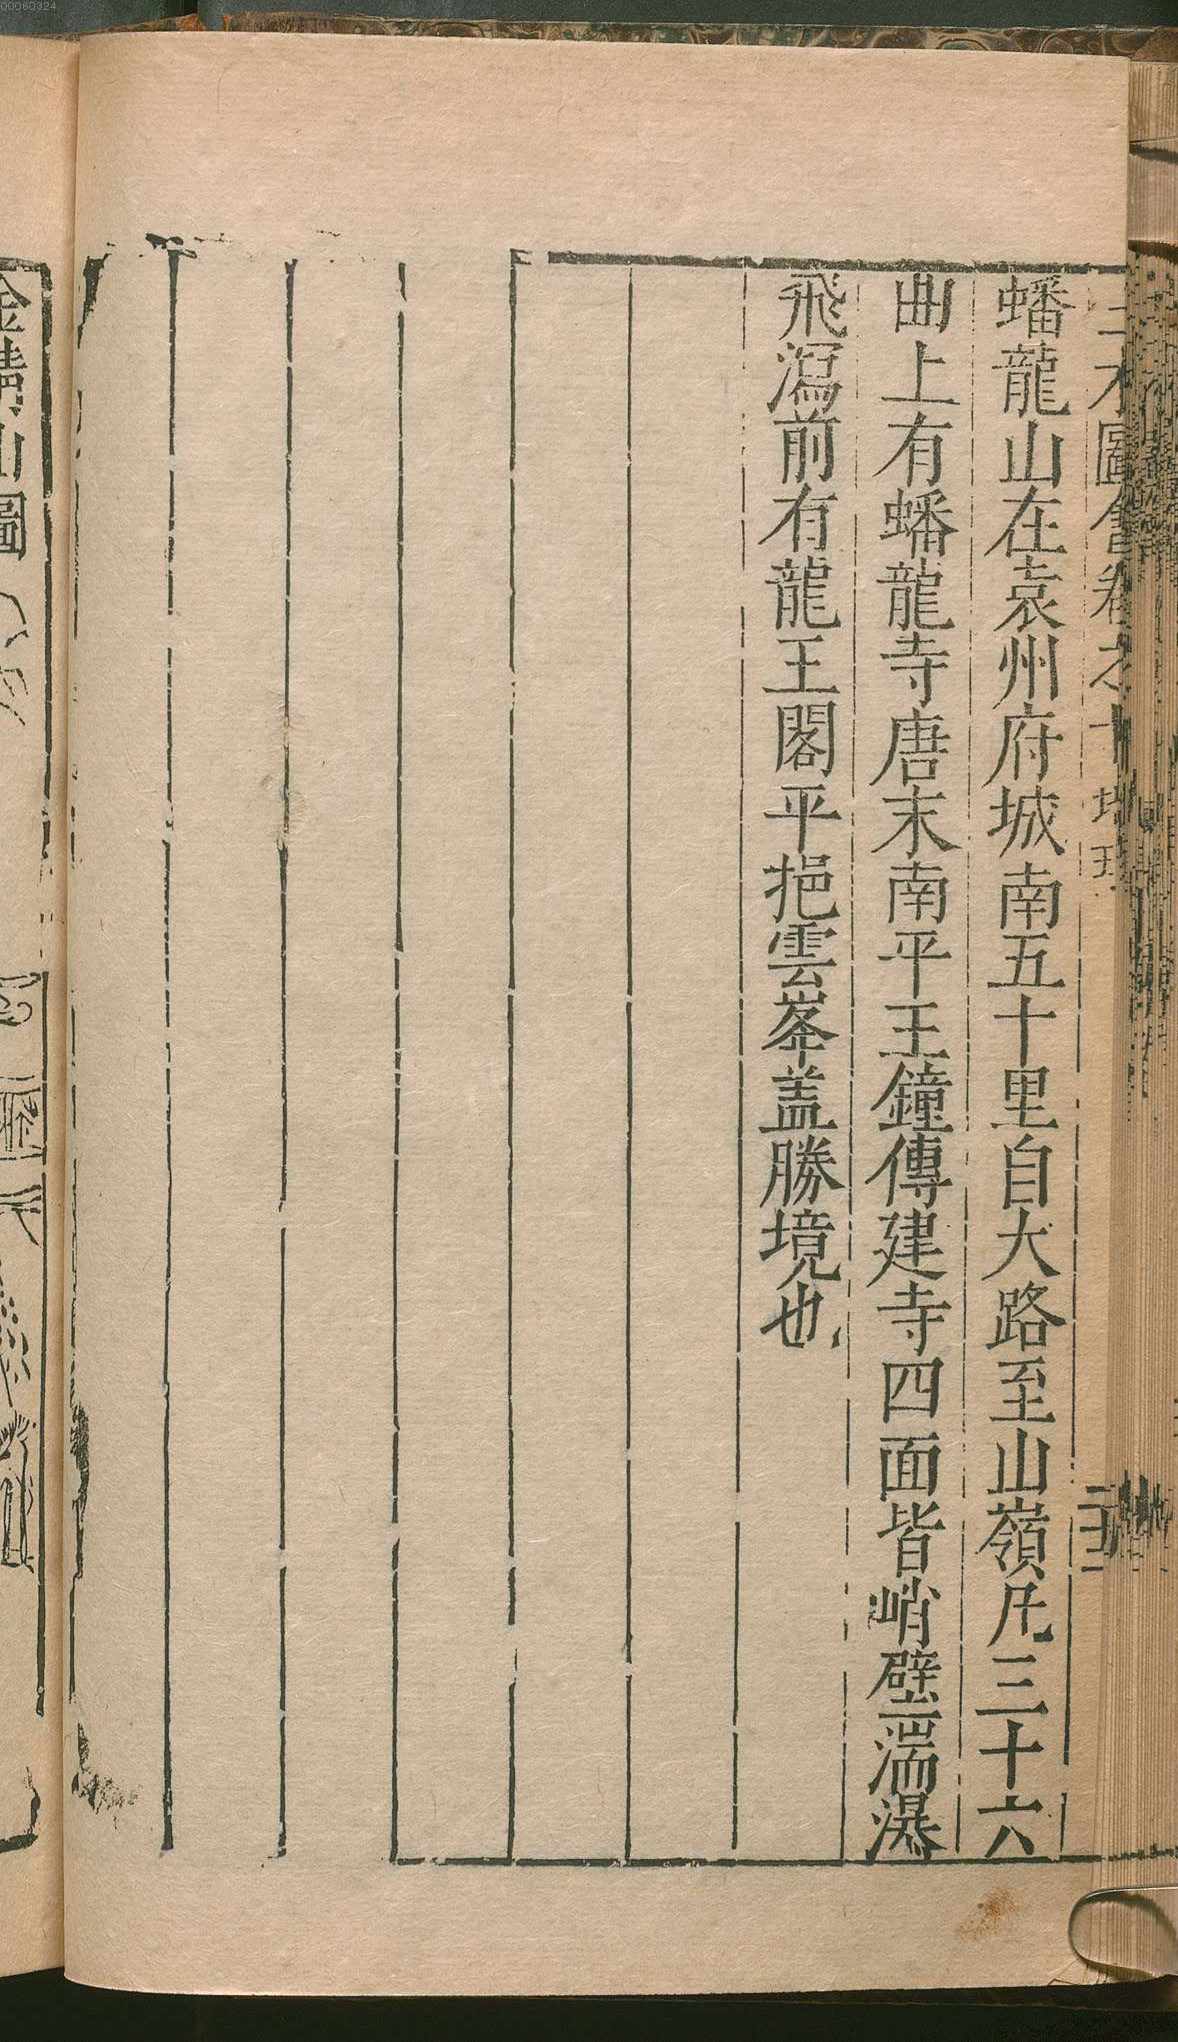 三才圖會卷之十 地理 二十二
蟠龍山在袁州府城南五十里自大路至山嶺凢三十六
曲上有蟠龍寺唐末南平王鐘傳建寺四面皆峭壁湍瀑
飛瀉前有龍王閣平挹雲峯盖勝境也
金精山圖
00060324